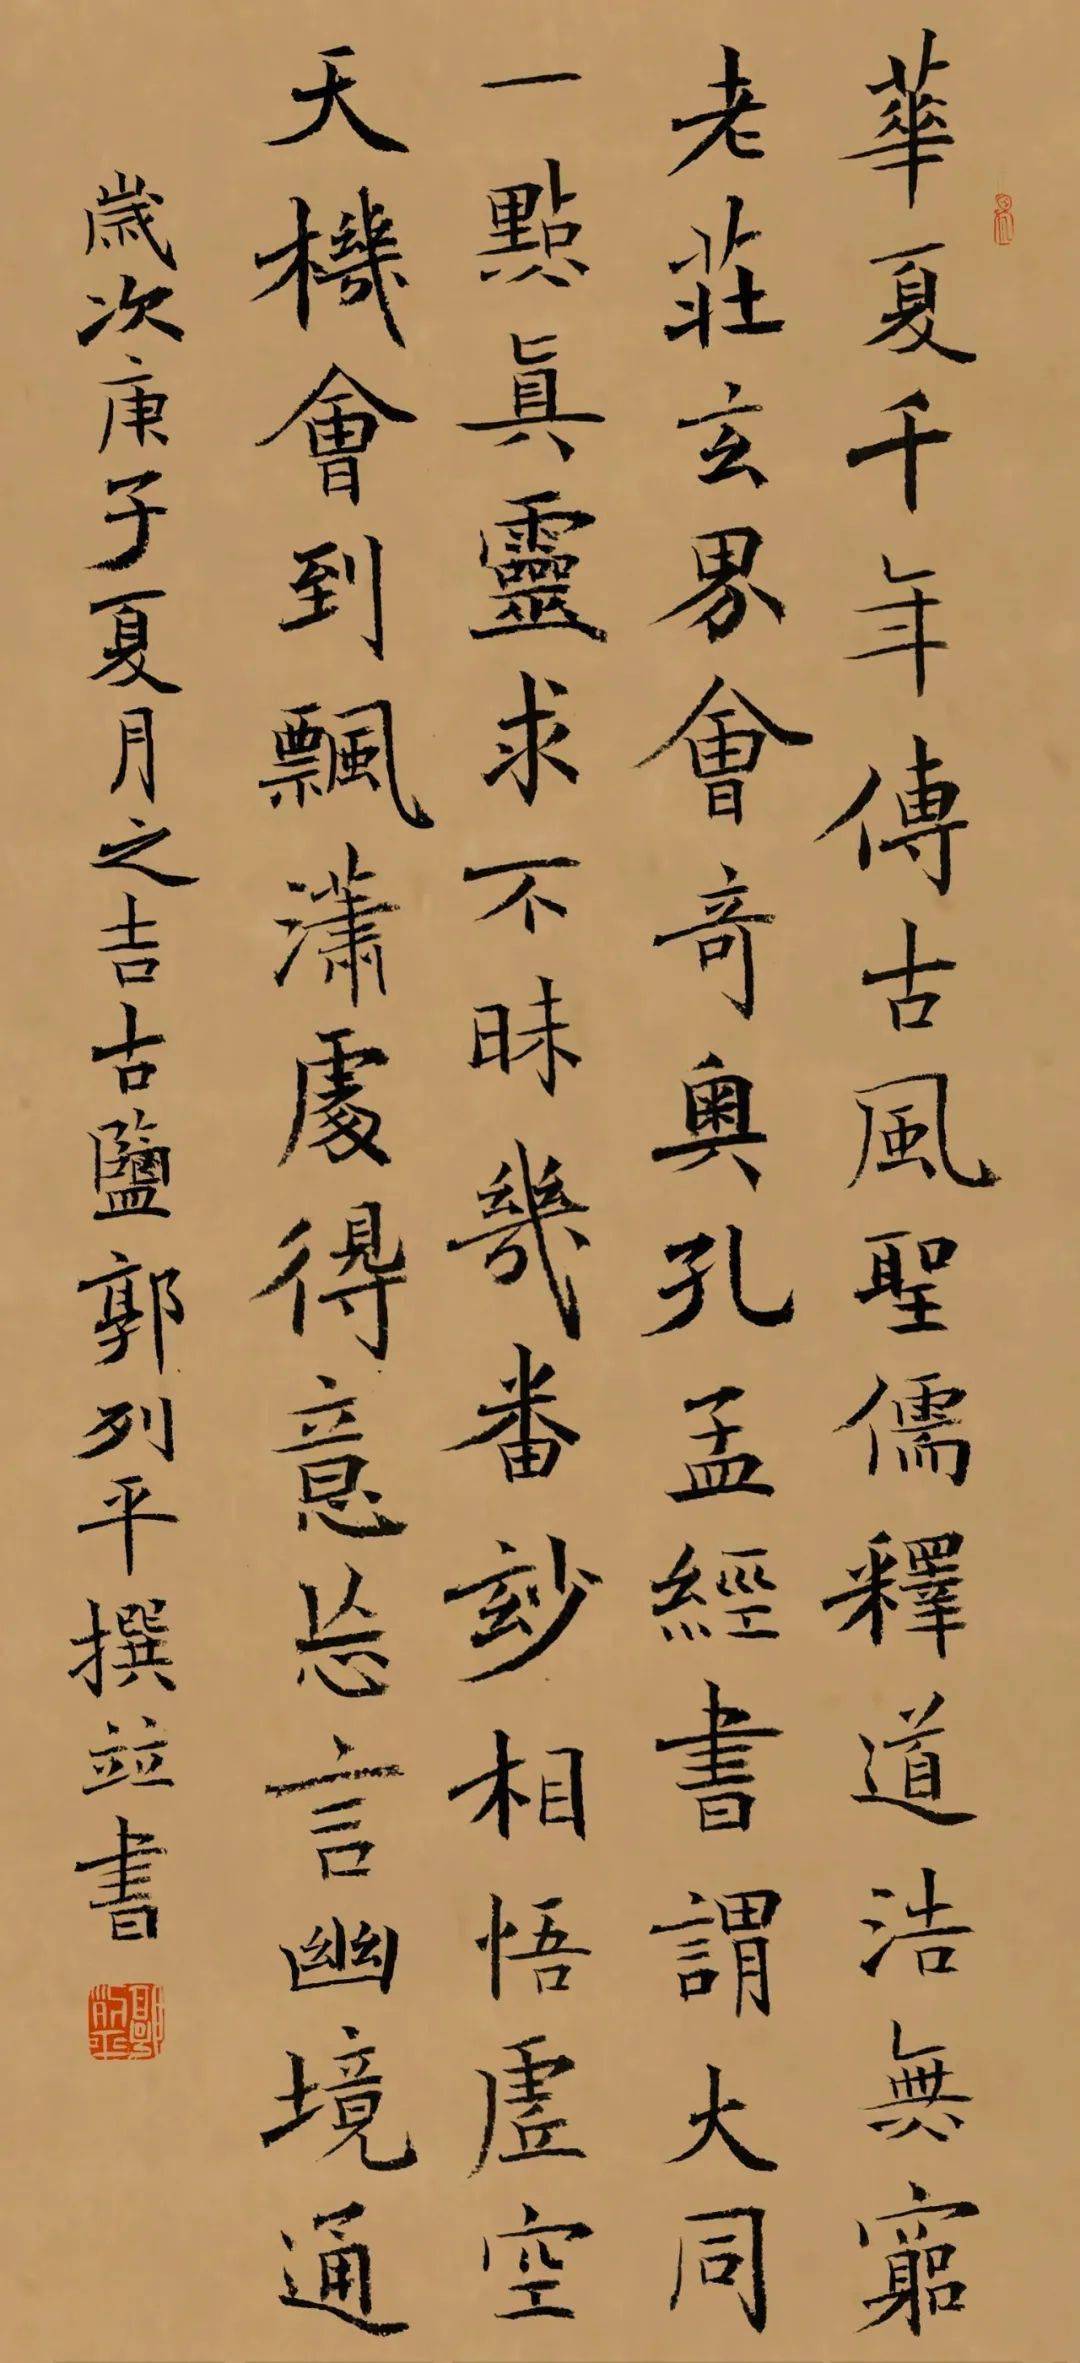 華夏千年傳古風聖儒釋道浩無窮
老莊玄界會奇奧孔孟經書謂大同
一點眞靈求不昧幾番玅相悟虛空
天機會到飄瀟處得意忘言幽境通
歲次庚子夏月之吉古鹽郭列平撰並書
郭列平